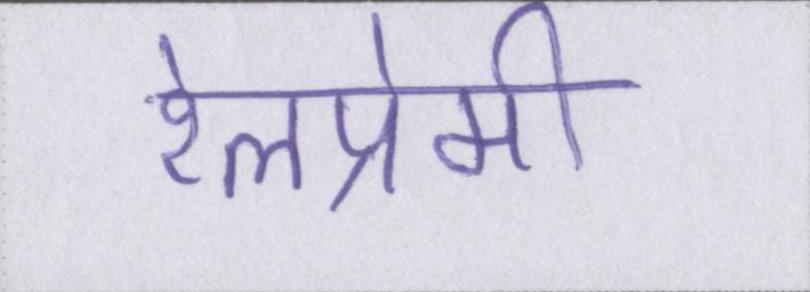 रेलप्रेमी